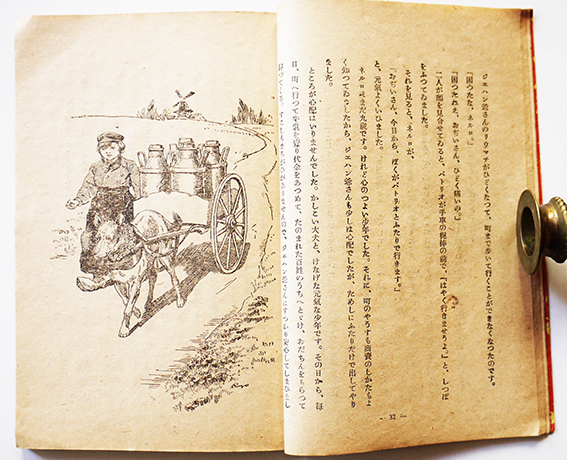 ジェハン爺さんのリウマチがひどくなつて、町まで歩いて行くことができなくなつたのです。
『困つたな、ネルロ。』
『困つたねえ、おぢいさん、ひどく痛いの。』
二人が顔を見合せてゐると、パトリオが手車の梶棒の前で、『はやく行きませうよ。』と、しつぽ
をふつてゐました。
それを見ると、ネルロが、
『おぢいさん、今日から、ぼくがパトリオとふたりで行きます。』
と、元氣よくいひました。
ネルロはまだ九歳です。けれど心のつよい少年でした。それに、町のやうすも商賣のしかたもよ
く知つてゐましたから、ジェハン爺さんも少しは心配でしたが、ためしにふたりだけで出してやり
ました。
ところが心配はいりませんでした。かしこい犬と、けなげな元氣な少年です。その日から、毎
日、町へ行つて牛乳を賣り代金をあつめて、たのまれた百姓のうちへとどけ、おだちんをもらつて
ジェハン爺さんはすつかり安心してしまひまし
— 32 —